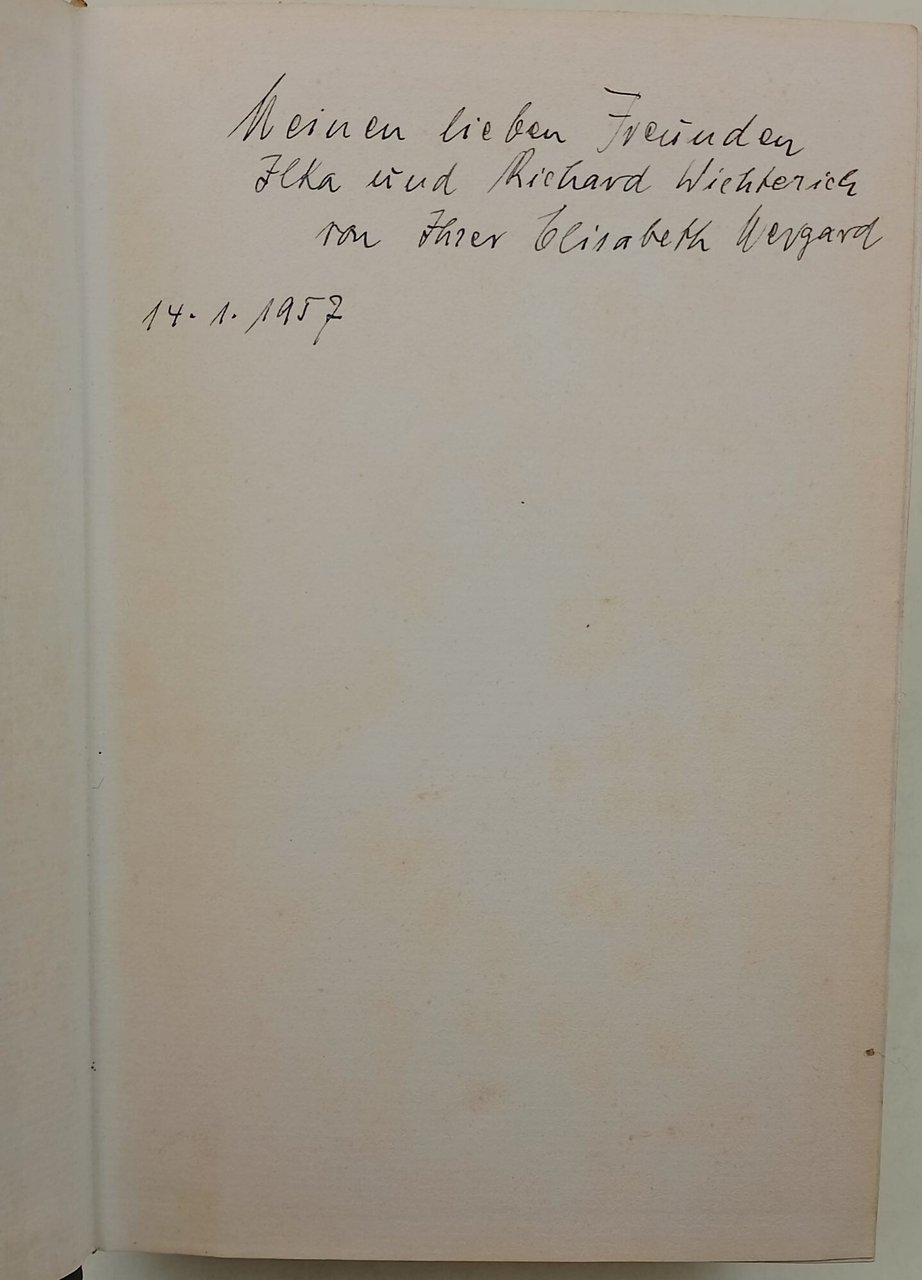 Meinen lieben Freunden
Ilka und Richard Wichterich
von Ihrer Elisabeth
14.1.1957